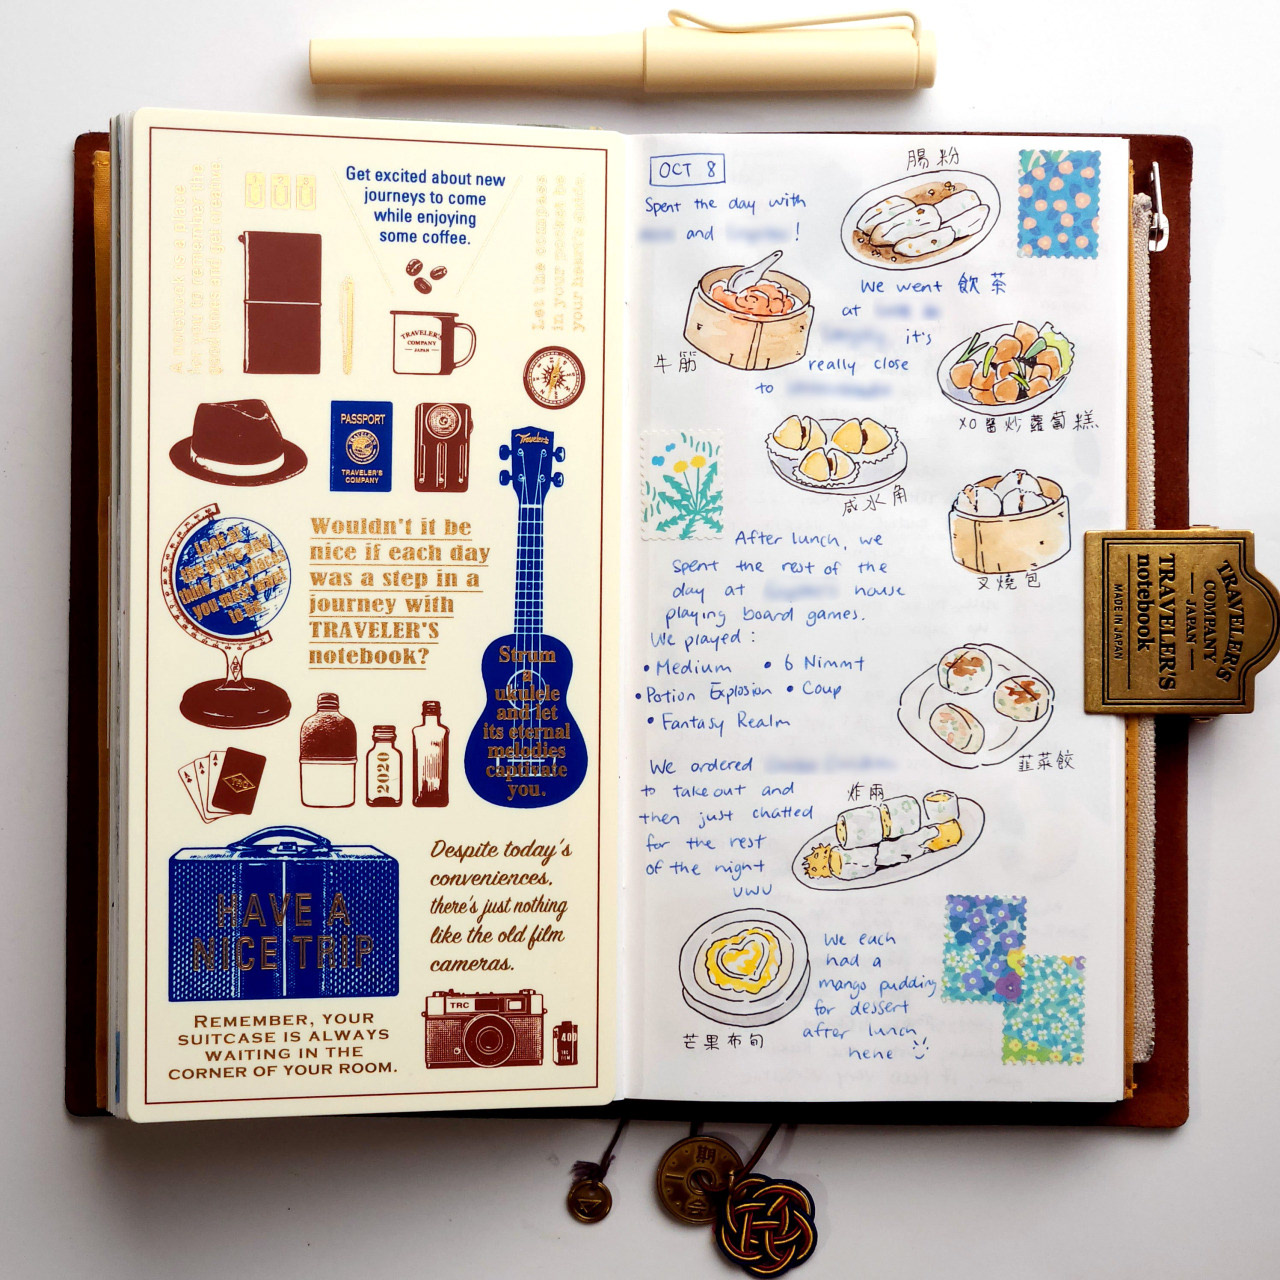 Get excited about new
journeys to come
while enjoying
some coffee.
Let the compass
in your pocket be
your heart's guide.
TRAVELER'S
COMPANY
JAPAN
PASSPORT
TRAVELER'S
COMPANY
Traveler's
Look at
the globe and
think of the places
you must travel
to be.
Wouldn't it be
nice if each day
was a step in a
journey with
TRAVELER'S
notebook?
Strum
a
ukulele
and let
its eternal
melodies
captivate
you.
2020
A
A
A
TRC
HAVE A
NICE TRIP
Despite today's
conveniences,
there's just nothing
like the old film
cameras.
REMEMBER, YOUR
SUITCASE IS ALWAYS
WAITING IN THE
CORNER OF YOUR ROOM.
TRC
400
TRC
FILM
OCT 8
腸粉
Spent the day with
and !
We went 飲茶
at
it's
really close
to
牛筋
XO醬炒蘿蔔糕
咸水角
叉燒包
After lunch, we
spent the rest of the
day at house
playing board games.
We played:
• Medium • 6 Nimmt
• Potion Explosion • Coup
• Fantasy Realm
韮菜餃
We ordered
to takeout and
then just chatted
for the rest
of the night
UWU
炸兩
We each
had a
mango pudding
for dessert
after lunch
hehe
芒果布甸
TRAVELER'S
COMPANY
JAPAN
TRAVELER'S
notebook
MADE IN JAPAN
期